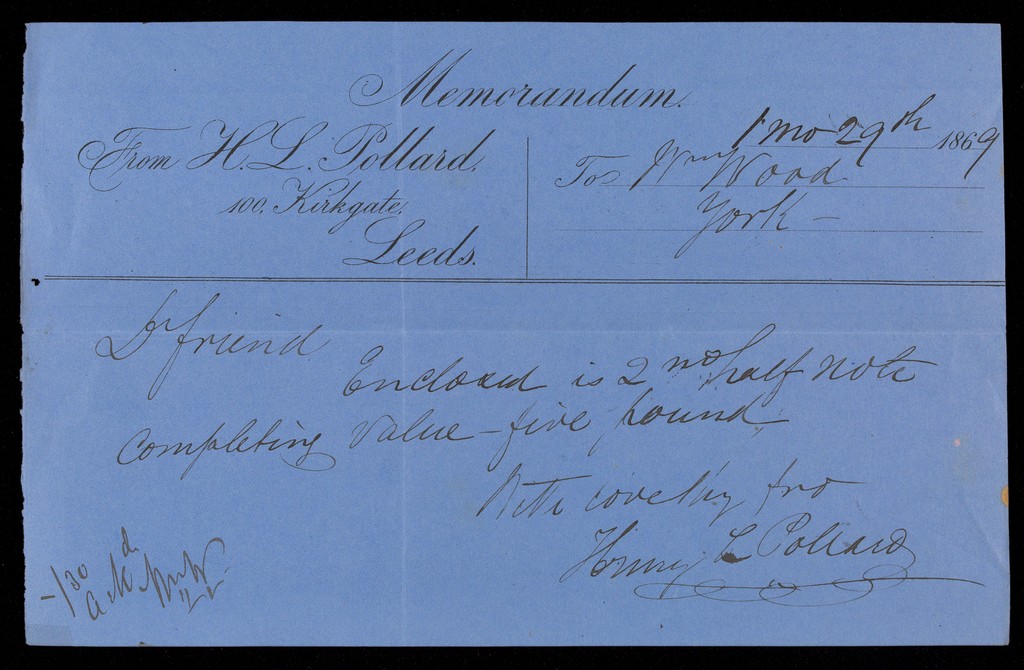 Memorandum.
From H. L. Pollard.
100, Kirkgate,
Leeds.
1 mo 29th 1869
To Wm Wood
York –
Dr friend
Enclosed is 2nd half note
completing value – five pound
With love thy frd
Henry L Pollard
1/30
Ackd